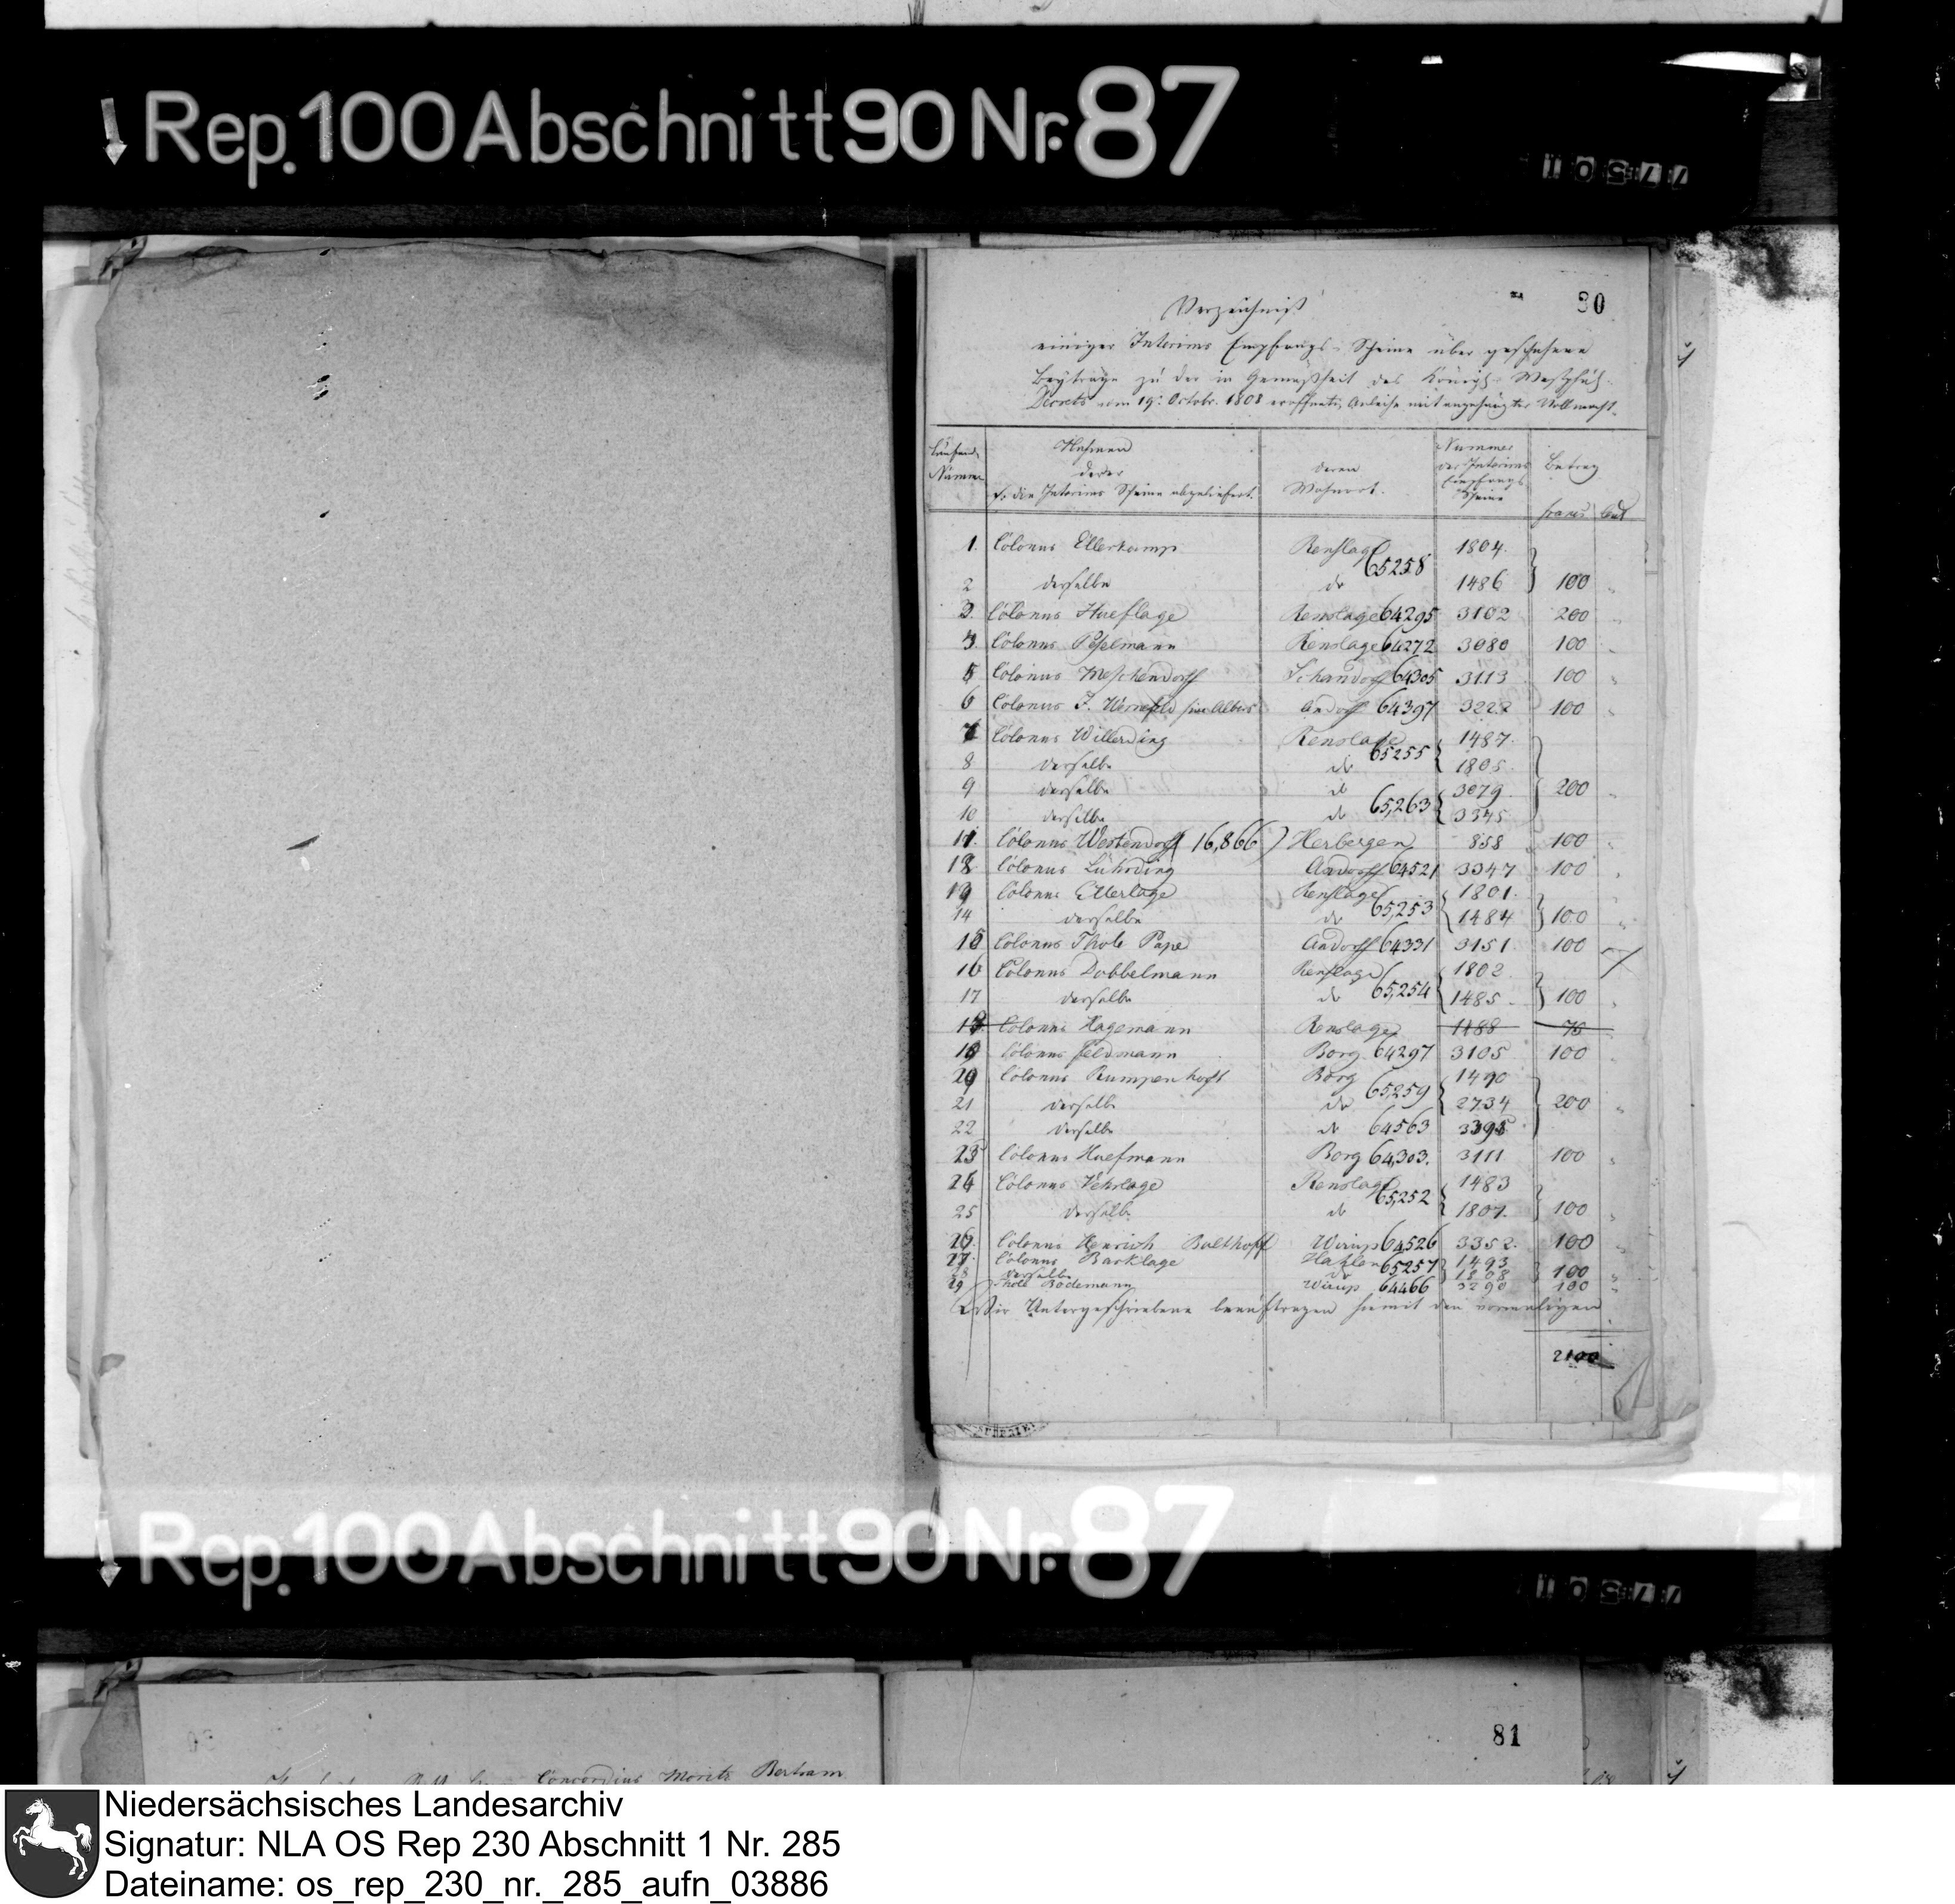 Rep. 100 Abschnitt 90 Nr. 87
77501
30
Verzeichniß
einiger Interims Empfangs-Scheine über geschehene
Beyträge zu der in Gemäßheit des Königl. Westphäl.
Decrets vom 19t. Octobr. 1808 eröffneten Anleihe mit angehängter Vollmacht.
Laufende Numer
Nahmen derer so die Interims Scheine abgeliefert.
deren Wohnort.
Nummer der Interims Empfangs Scheine
Betrag
francs Cent
1. Colonus Ellerkamp Renslage 1804.
65258
2 derselbe do 1486 100 "
3. Colonus Hueflage Renslage 64295 3102 200 "
4. Colonus Peselmann Renslage 64272 3080 100 "
5 Colonus Meschendorff Schandorff 64305 3113 100 "
6 Colonus J. Wernefeld sive Albers Andorff 64397 3222 100 "
7 Colonus Willerding Renslage 1487.
65255
8 derselbe do 1805.
9 derselbe do 3079. 200 "
65,263
10 derselbe do 3345
11. Colonus Westendorff (16,866) Herbergen 858 100 "
12 Colonus Lührding Andorff 64521 3347 100 "
13 Colonus Ellerlage Renslage 1801.
65,253
14 derselbe do 1484 100 "
15 Colonus Thole Pape Andorff 64331 3151. 100
16 Colonus Dobbelmann Renslage 1802.
65,254
17 derselbe do 1485. 100 "
18 Colonus Hagemann Renslage 1488 75
19 Colonus Feldmann Borg 64297 3105 100 "
20 Colonus Rumpenhorst Borg 1490
65,259
21 derselbe do 2734 200 "
22 derselbe do 64563 3395
23 Colonus Huefmann Borg 64,303. 3111 100 "
24 Colonus Vehrlage Renslage 1483
65,252
25 derselbe do 1807. 100 "
26. Colonus Henrich Bulthoff Wirup 64526 3352. 100 "
27. Colonus Barklage Hahlen 65257 1493
28 derselbe do 1808 100 "
29 Thole Bödemann Wirup 64466 3290 100 "
Wir Untergeschriebene beauftragen hiemit den vormaligen
2100
Rep. 100 Abschnitt 90 Nr. 87
77501
81
Concordius Moritz Bertram
Niedersächsisches Landesarchiv
Signatur: NLA OS Rep 230 Abschnitt 1 Nr. 285
Dateiname: os_rep_230_nr._285_aufn_03886